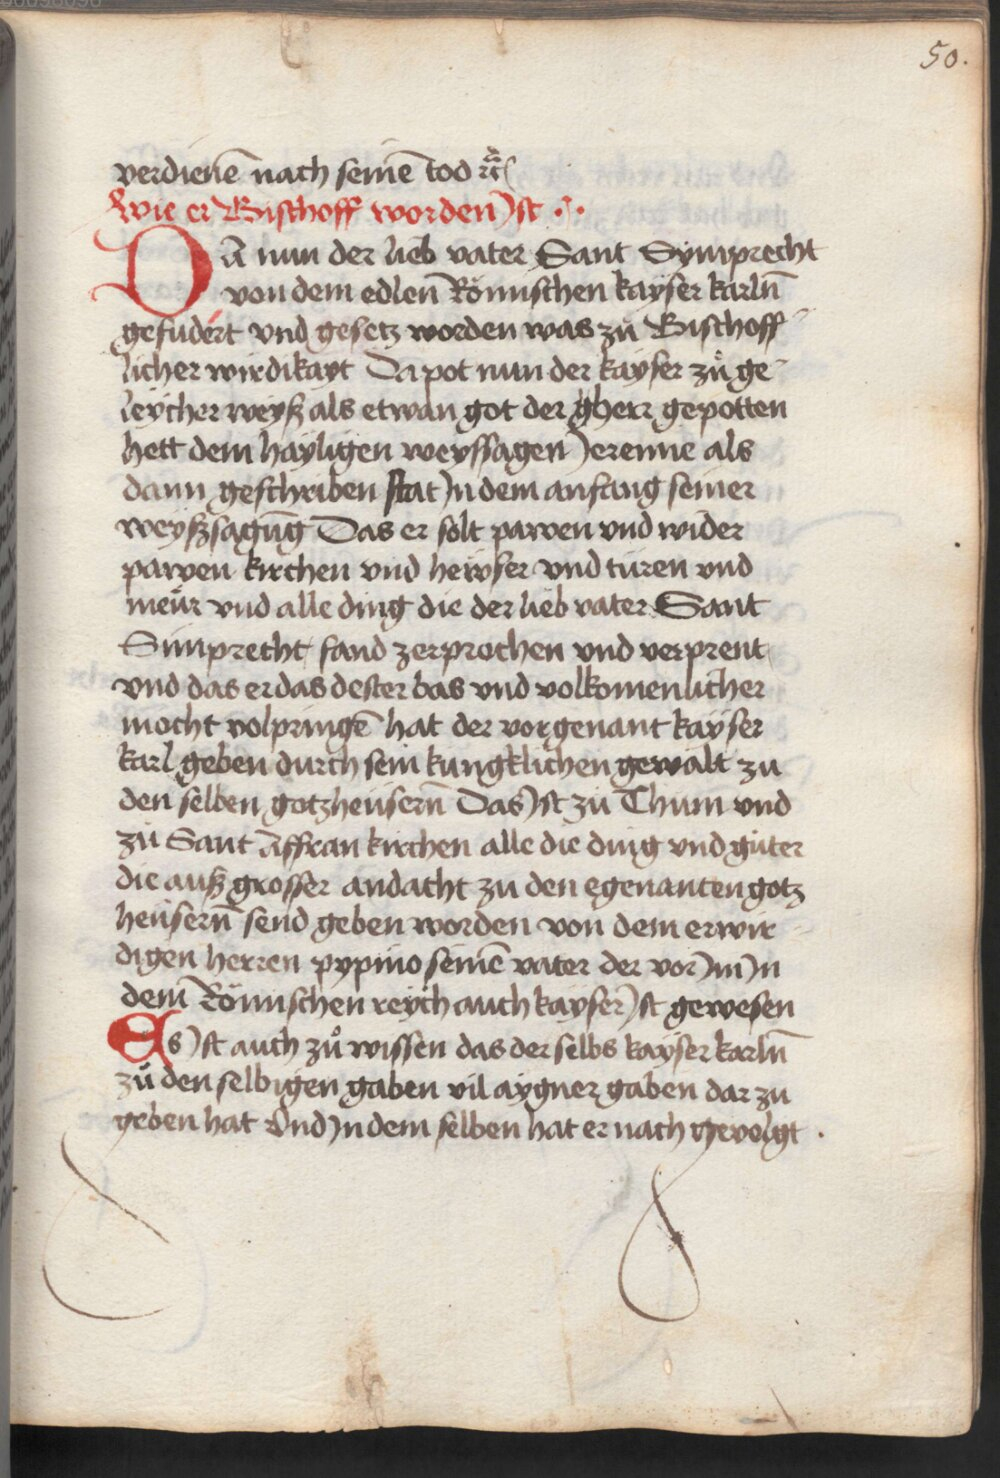 50.
verdienē nach seinē tod ꝛc̄
Wie er Bischoff worden Jst
DA nun der lieb vater Sant Symprecht
von dem edlen̄ Römischen kayser karln̄
gefudert vnd gesetz worden was zů Bischoff
licher wirdikayt Da pot nun der kayser zů ge
leycher weyß als etwan got der herr gepotten
hett dem hayligen weyssagen Jeremie als
dann geschriben stat Jn dem anfang seiner
weyßsagūg Das er solt pawen vnd wider
pawen kirchen vnd hewser vnd türen vnd
meür vnd alle ding die der lieb vater Sant
Simprecht fand zerprochen vnd verprent
vnd das er das dester bas vnd volkomenlicher
mocht volpringē hat der vorgenant kayser
karl geben durch sein kungklichen gewalt zu
den selben gotzheüsern̄ Das Jst zů Thum vnd
zů Sant Affran kirchen alle die ding vnd güter
die auß grosser andacht zu den egenanten gotz
heüsern̄ send geben worden von dem erwir
digen herren pypino seinē vater der vor Jm Jn
dem Römischen reych auch kayser Jst gewesen
Es Jst auch zů wissen das der selbs kayser karln̄
zů den selbigen gaben vil aygner gaben dar zu
geben hat Vnd Jn dem selben hat er nach gevolgt .